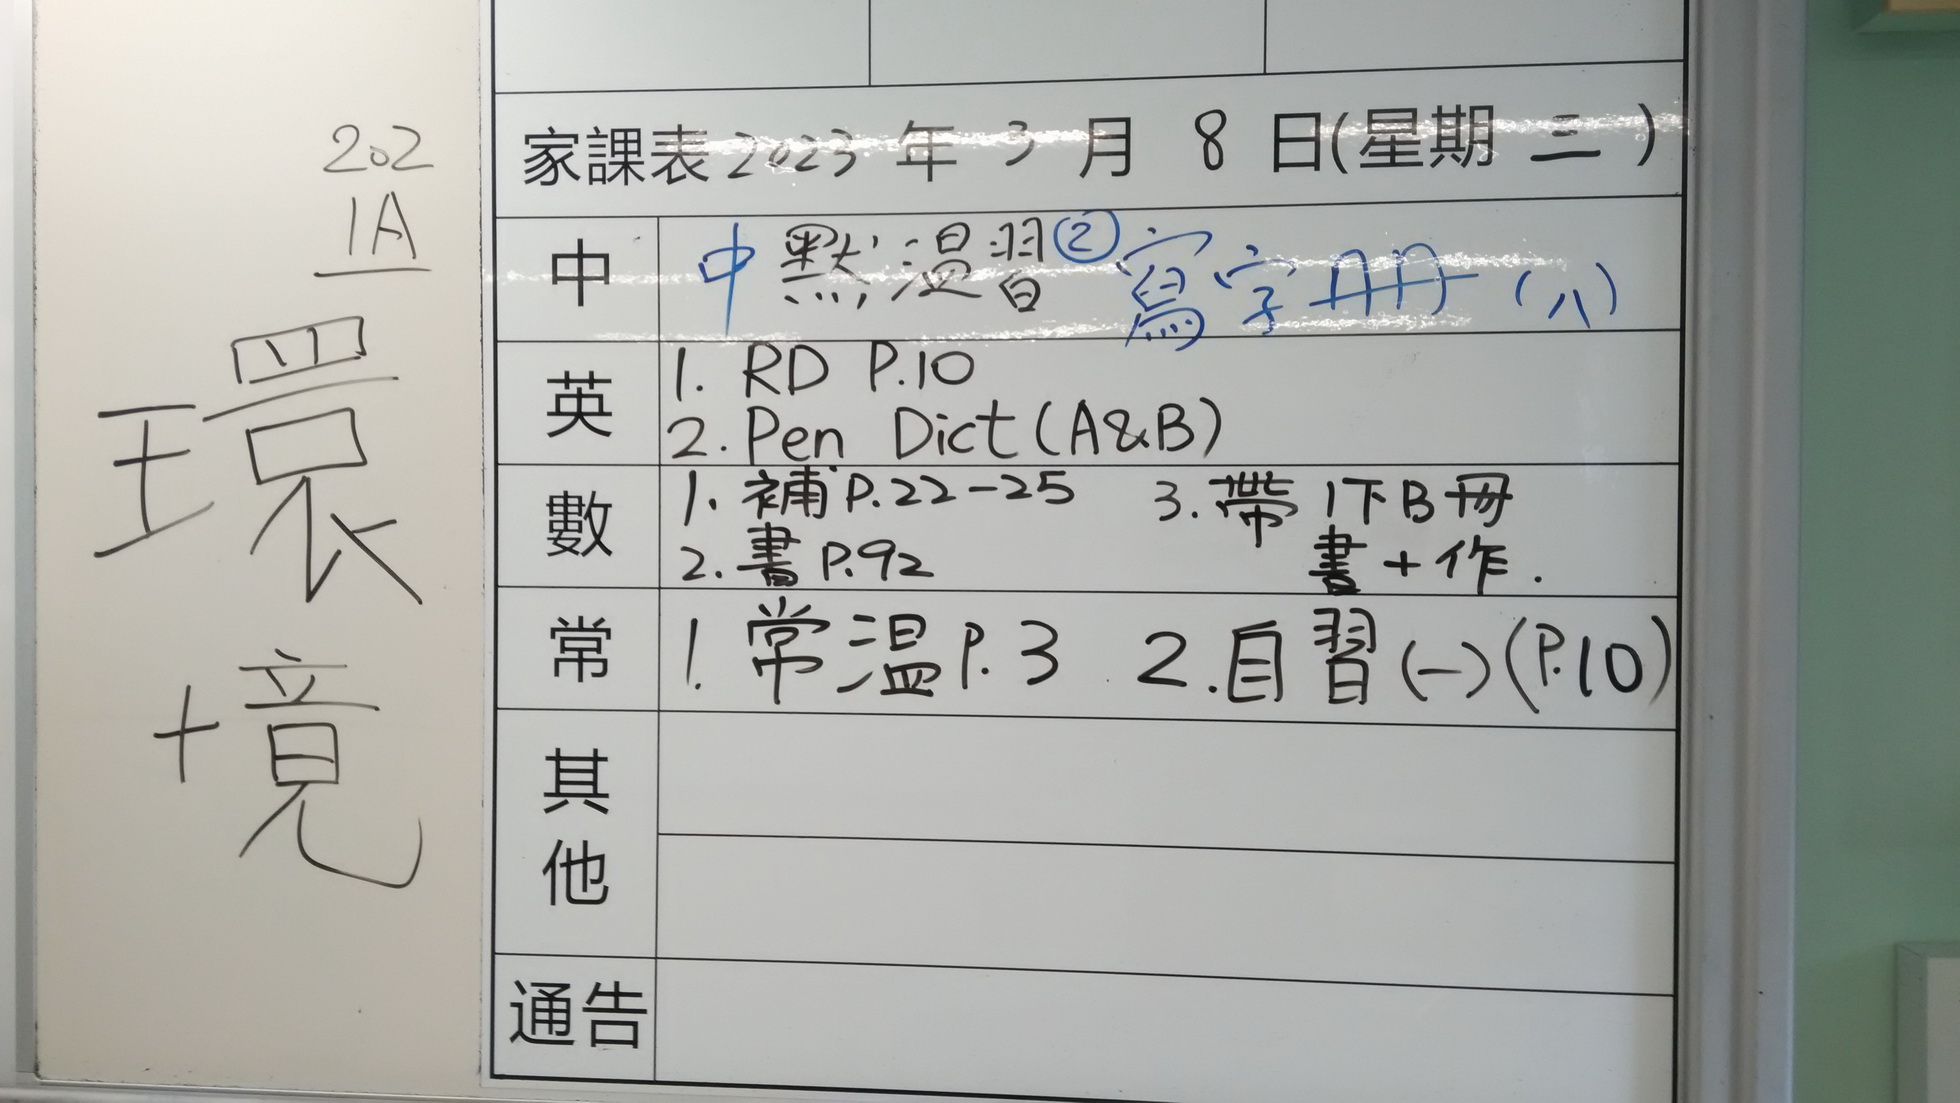 202
1A
環
境
家課表2023年3月8日(星期三)
中
中默溫習②寫字冊(八)
英
1. RD P.10
2. Pen Dict(A&B)
數
1. 補P.22-25 3. 帶1下B冊
2. 書P.92 書+作.
常
1. 常溫P.3 2. 自習(一)(P.10)
其
他
通告